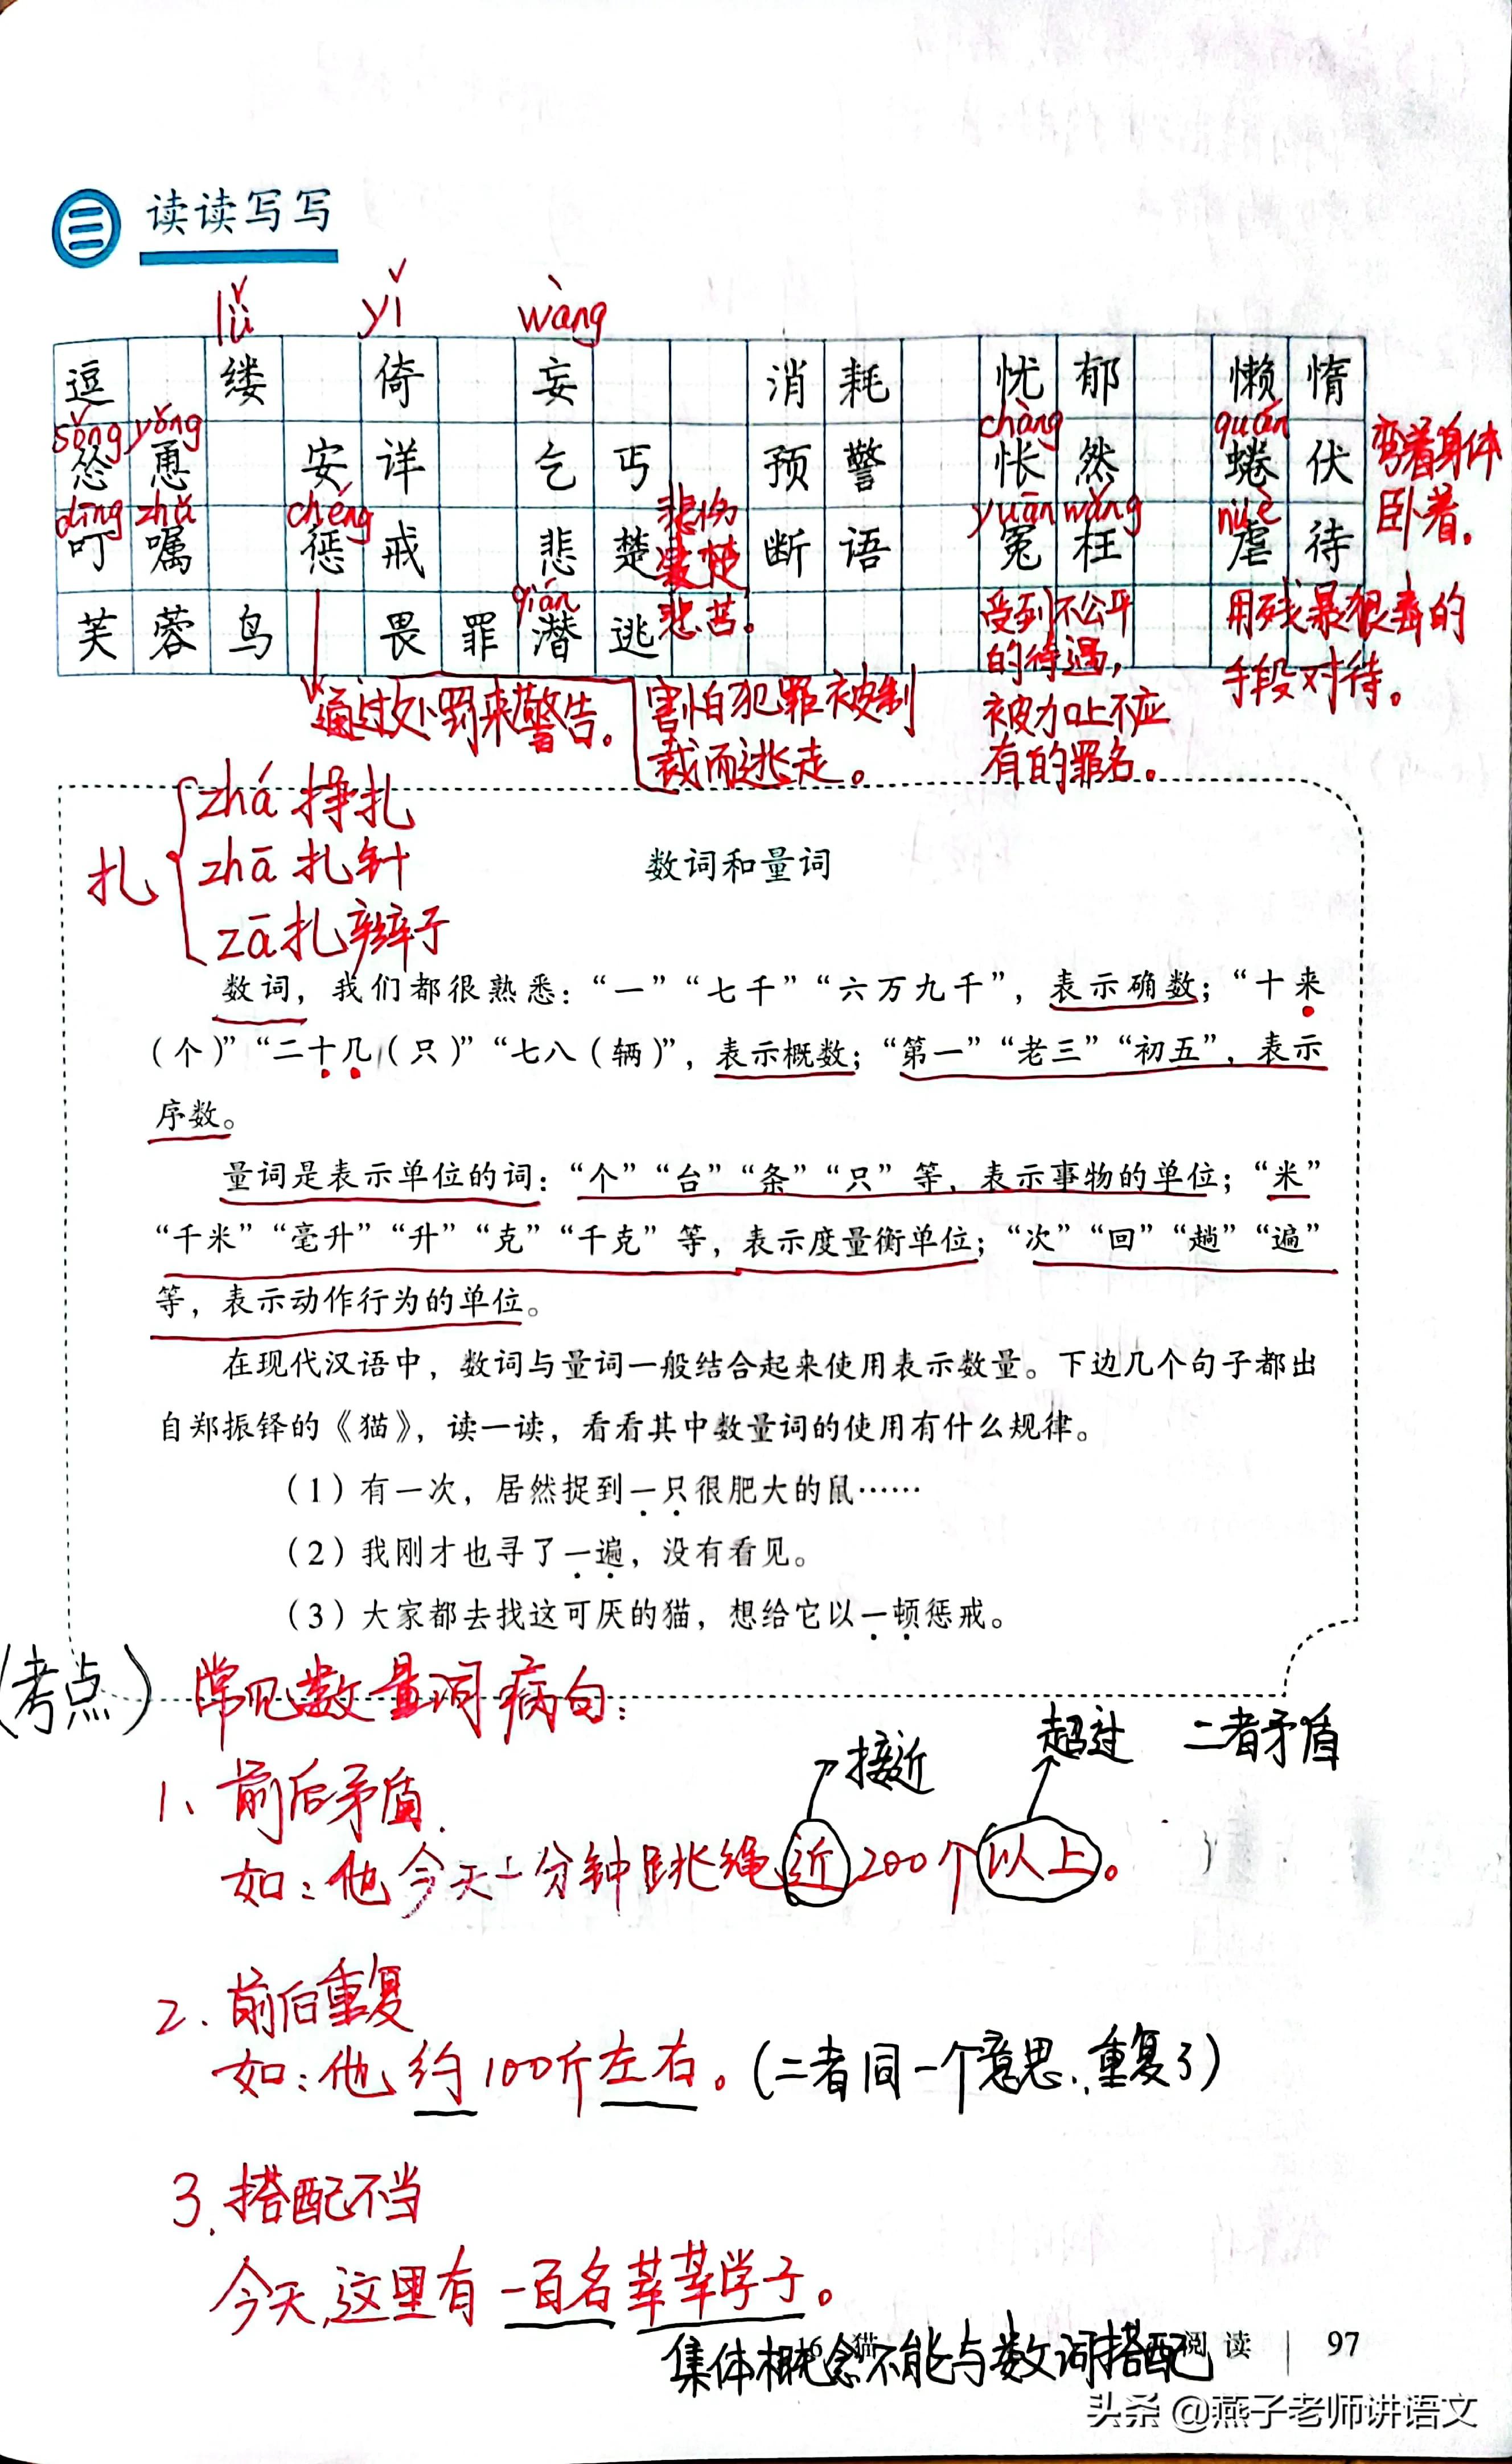 三 读读写写
lǚ yǐ wàng
逗 缕 倚 妄 消耗 忧郁 懒惰
sǒng yǒng chàng quán
怂恿 安详 乞丐 预警 怅然 蜷伏 弯着身体
卧着。
dīng zhǔ chéng yuān wǎng nüè
叮嘱 惩戒 悲楚 断语 冤枉 虐待
悲伤
凄楚
悲苦。
qián
芙蓉鸟 畏罪潜逃
受到不公平
的待遇,
被加上不应
有的罪名。
用残暴狠毒的
手段对待。
通过处罚来警告。
害怕犯罪被制
裁而逃走。
扎
zhá 挣扎
zhā 扎针
zā 扎辫子
数词和量词
数词,我们都很熟悉:“一”“七千”“六万九千”,表示确数;“十来
(个)”“二十几(只)”“七八(辆)”,表示概数;“第一”“老三”“初五”,表示
序数。
量词是表示单位的词:“个”“台”“条”“只”等,表示事物的单位;“米”
“千米”“毫升”“升”“克”“千克”等,表示度量衡单位;“次”“回”“趟”“遍”
等,表示动作行为的单位。
在现代汉语中,数词与量词一般结合起来使用表示数量。下边几个句子都出
自郑振铎的《猫》,读一读,看看其中数量词的使用有什么规律。
(1)有一次,居然捉到一只很肥大的鼠……
(2)我刚才也寻了一遍,没有看见。
(3)大家都去找这可厌的猫,想给它以一顿惩戒。
(考点) 常见数量词病句:
接近 超过 二者矛盾
1、前后矛盾.
如:他今天一分钟跳绳近200个以上。
2. 前后重复
如:他约100斤左右。(二者同一个意思,重复了)
3. 搭配不当
今天,这里有一百名莘莘学子。
16 猫 阅读 | 97
集体概念不能与数词搭配
头条 @燕子老师讲语文